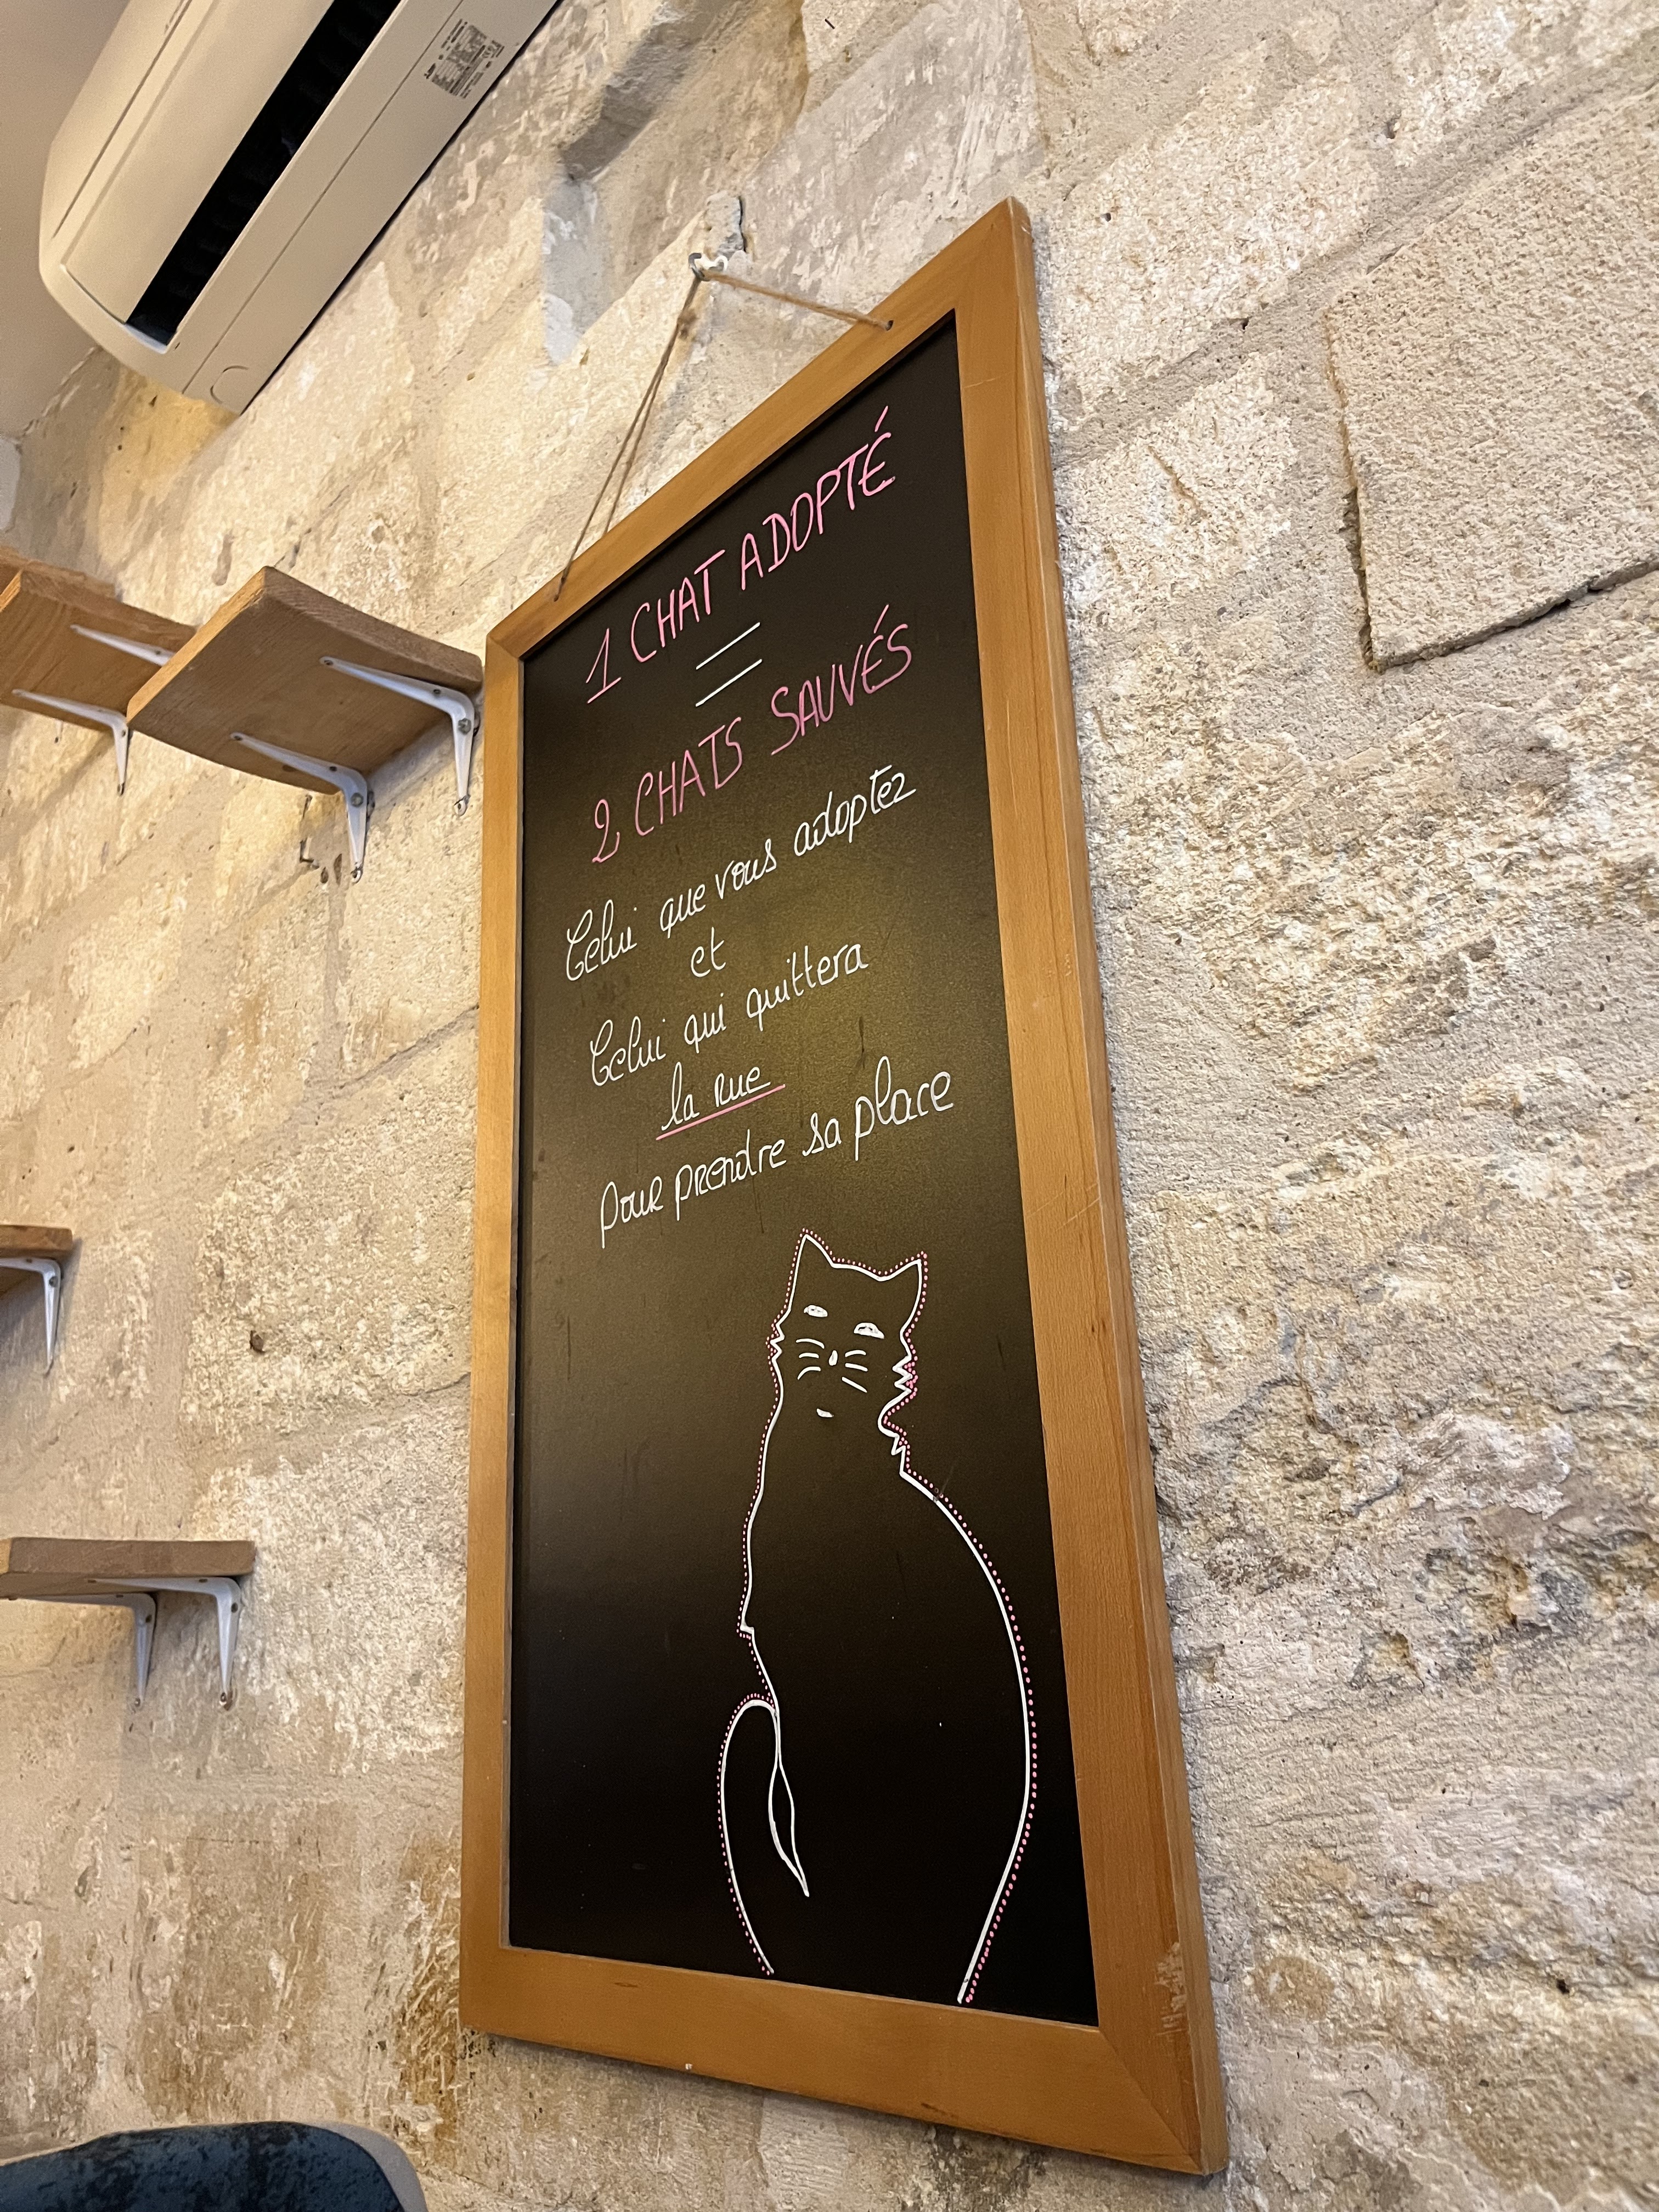 1 CHAT ADOPTÉ
=
2 CHATS SAUVÉS
Celui que vous adoptez
et
Celui qui quittera
la rue
pour prendre sa place